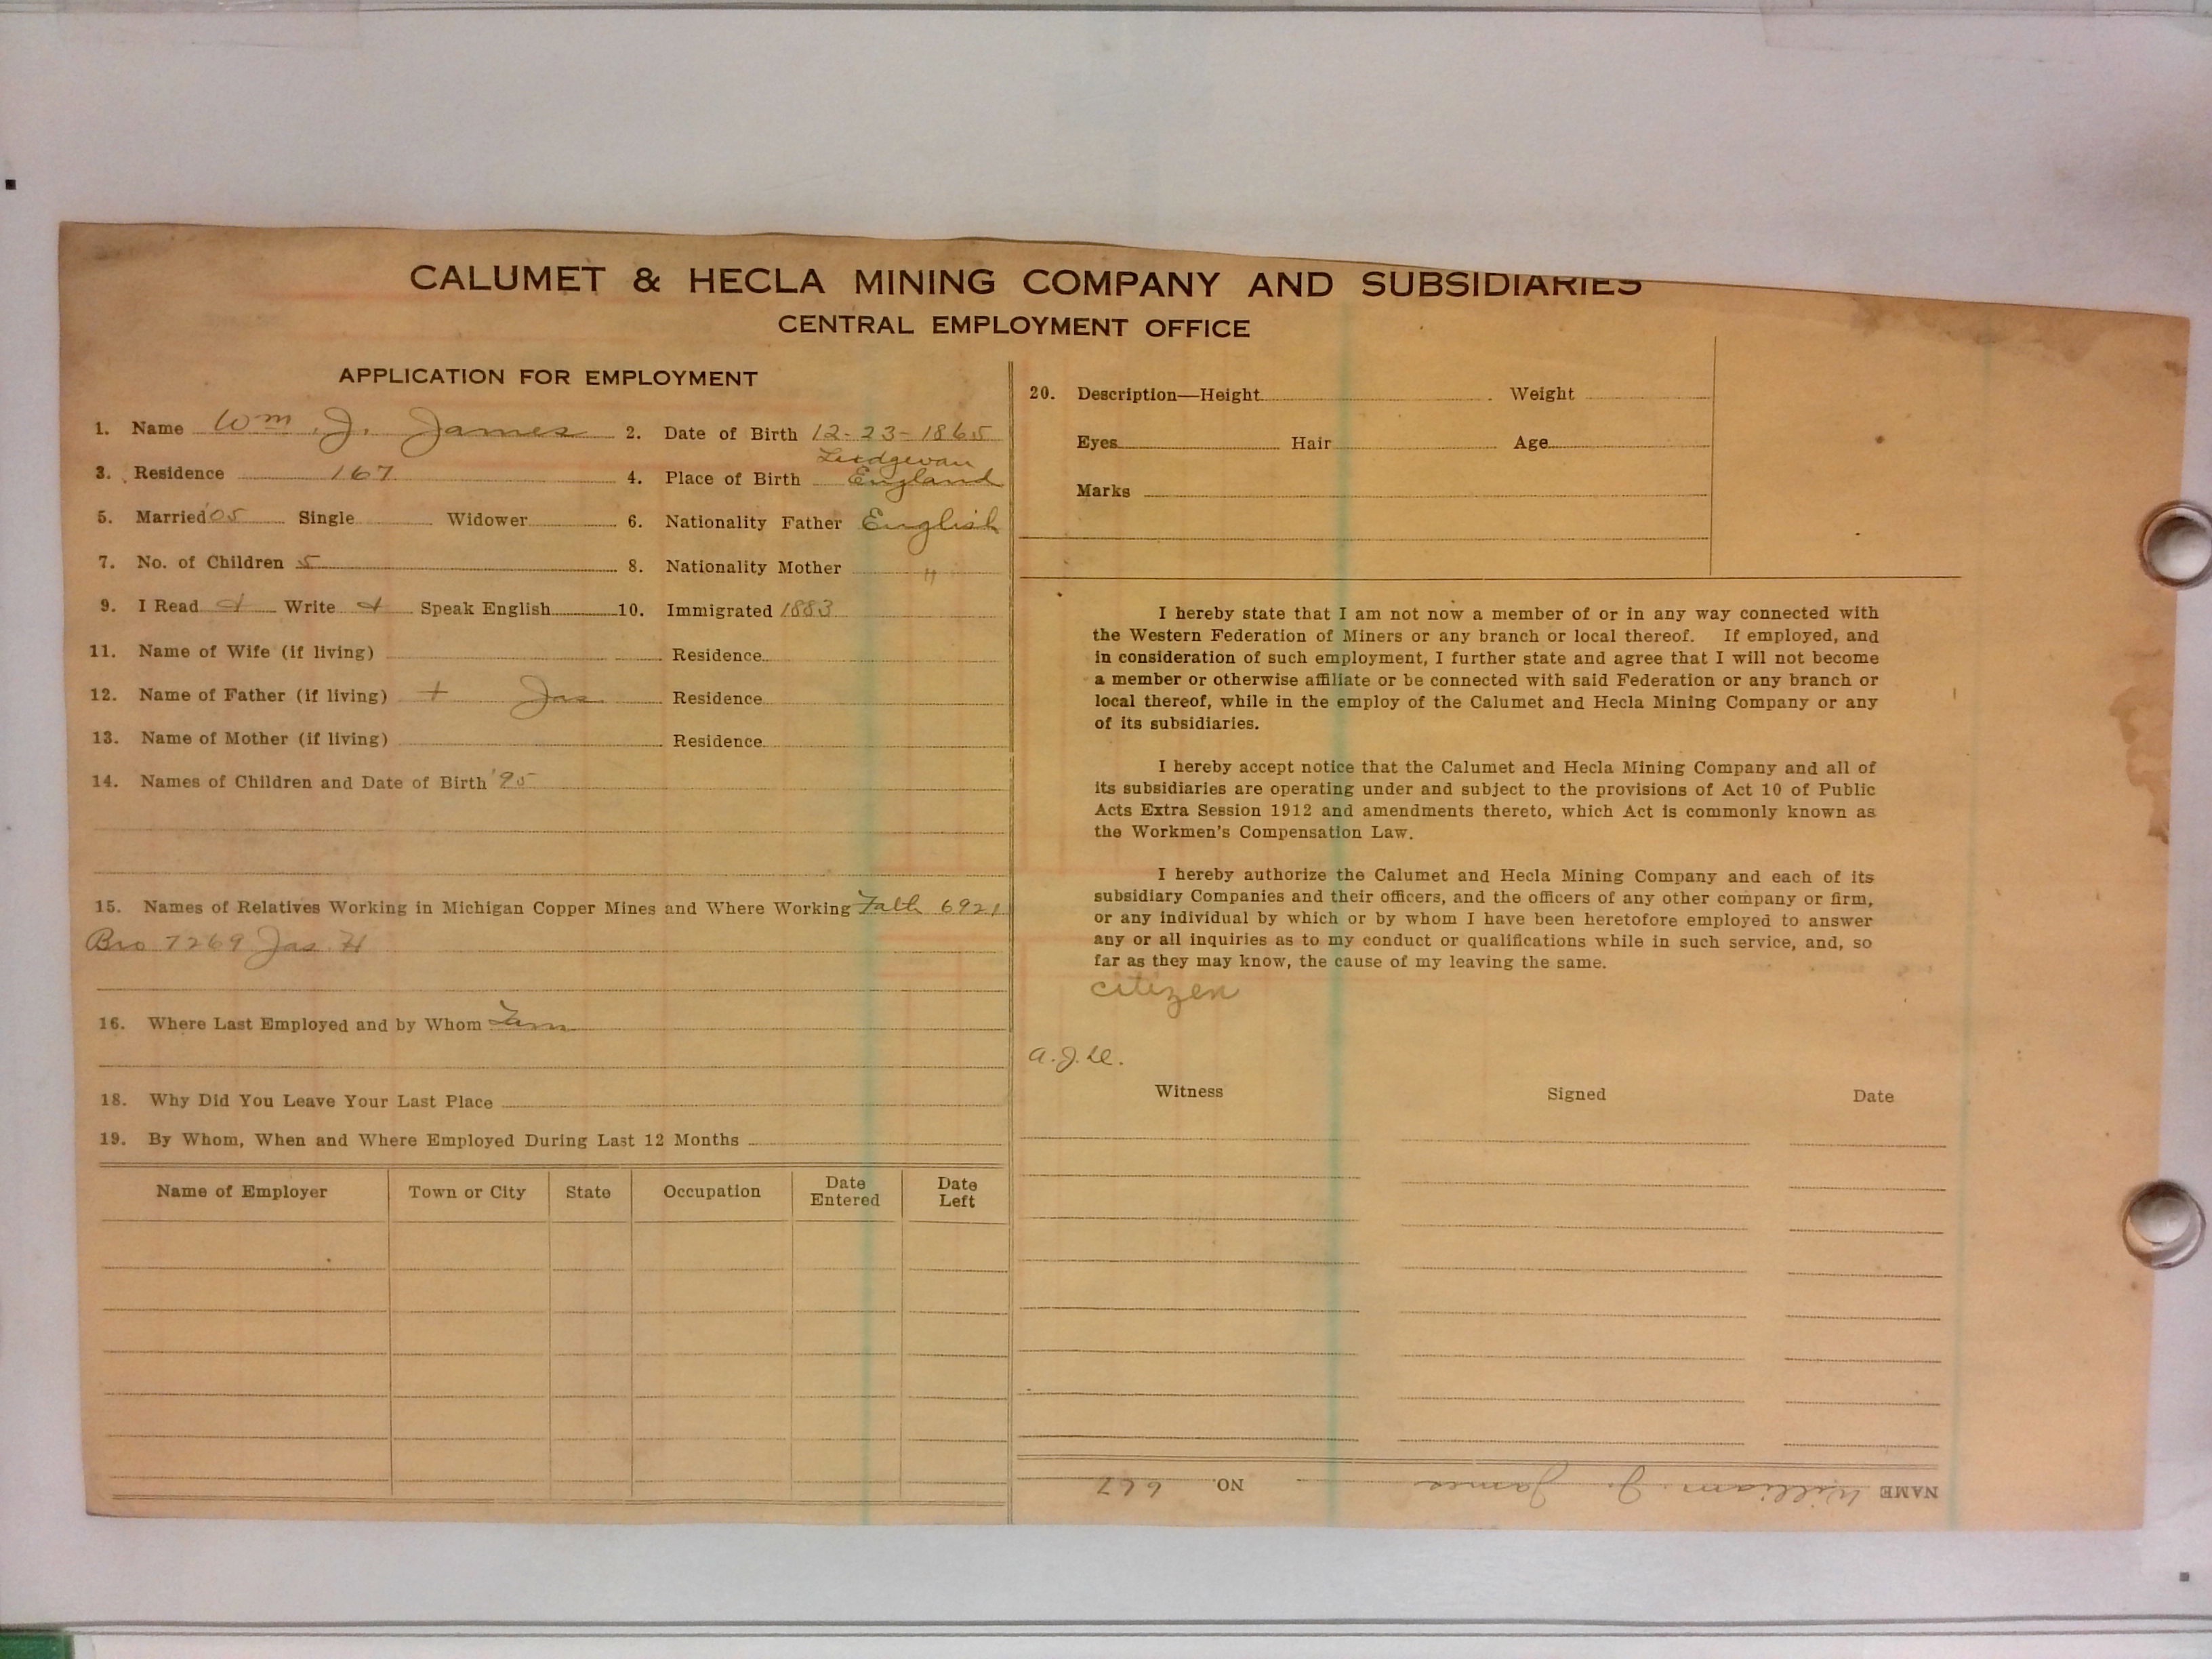 CALUMET & HECLA MINING COMPANY AND SUBSIDIARIES
CENTRAL EMPLOYMENT OFFICE
APPLICATION FOR EMPLOYMENT
1. Name Wm. J. James 2. Date of Birth 12-23-1865
3. Residence 167 4. Place of Birth Ludgevan England
5. Married '05 Single Widower 6. Nationality Father English
7. No. of Children 5 8. Nationality Mother "
9. I Read Write Speak English 10. Immigrated 1883
11. Name of Wife (if living) Residence
12. Name of Father (if living) + Jas Residence
13. Name of Mother (if living) Residence
14. Names of Children and Date of Birth '95
15. Names of Relatives Working in Michigan Copper Mines and Where Working Fath 6921
Bro 7269 Jas H
16. Where Last Employed and by Whom
18. Why Did You Leave Your Last Place
19. By Whom, When and Where Employed During Last 12 Months
Name of Employer Town or City State Occupation Date Entered Date Left
20. Description—Height Weight
Eyes Hair Age
Marks
I hereby state that I am not now a member of or in any way connected with
the Western Federation of Miners or any branch or local thereof. If employed, and
in consideration of such employment, I further state and agree that I will not become
a member or otherwise affiliate or be connected with said Federation or any branch or
local thereof, while in the employ of the Calumet and Hecla Mining Company or any
of its subsidiaries.
I hereby accept notice that the Calumet and Hecla Mining Company and all of
its subsidiaries are operating under and subject to the provisions of Act 10 of Public
Acts Extra Session 1912 and amendments thereto, which Act is commonly known as
the Workmen's Compensation Law.
I hereby authorize the Calumet and Hecla Mining Company and each of its
subsidiary Companies and their officers, and the officers of any other company or firm,
or any individual by which or by whom I have been heretofore employed to answer
any or all inquiries as to my conduct or qualifications while in such service, and, so
far as they may know, the cause of my leaving the same.
citizen
Witness Signed Date
NAME William J. James NO. 667